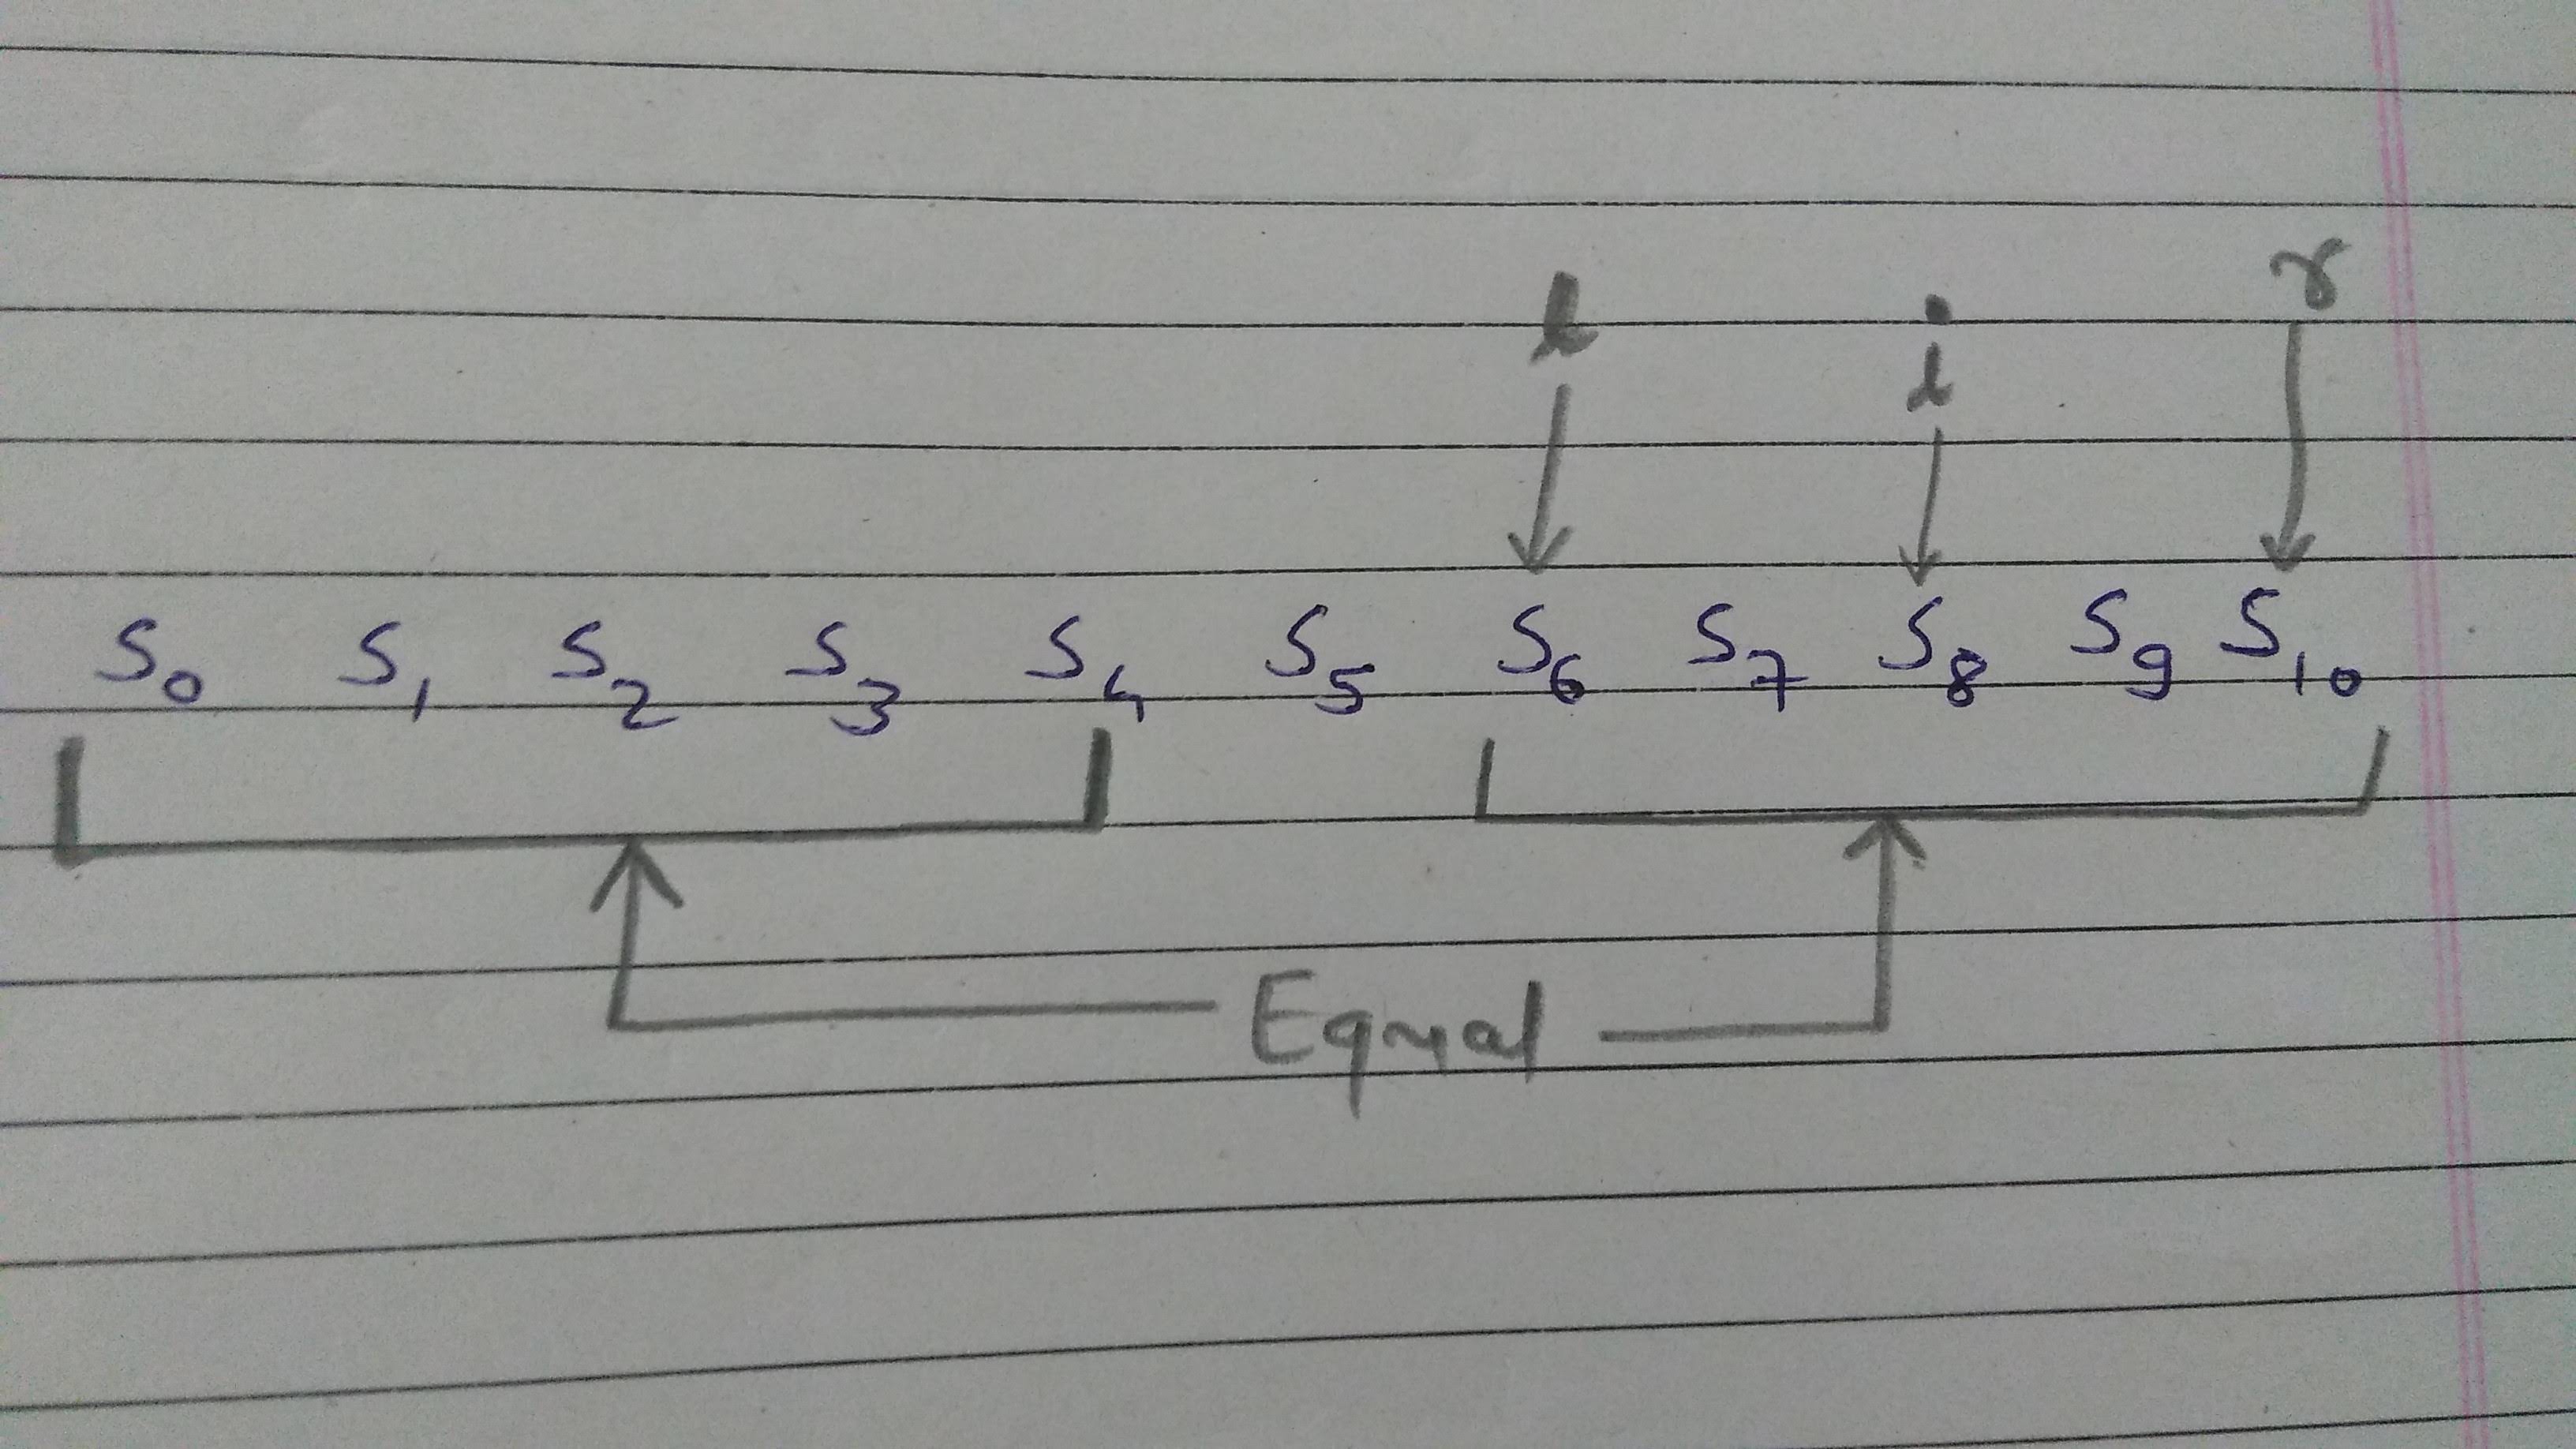 l i r
S0 S1 S2 S3 S4 S5 S6 S7 S8 S9 S10
Equal